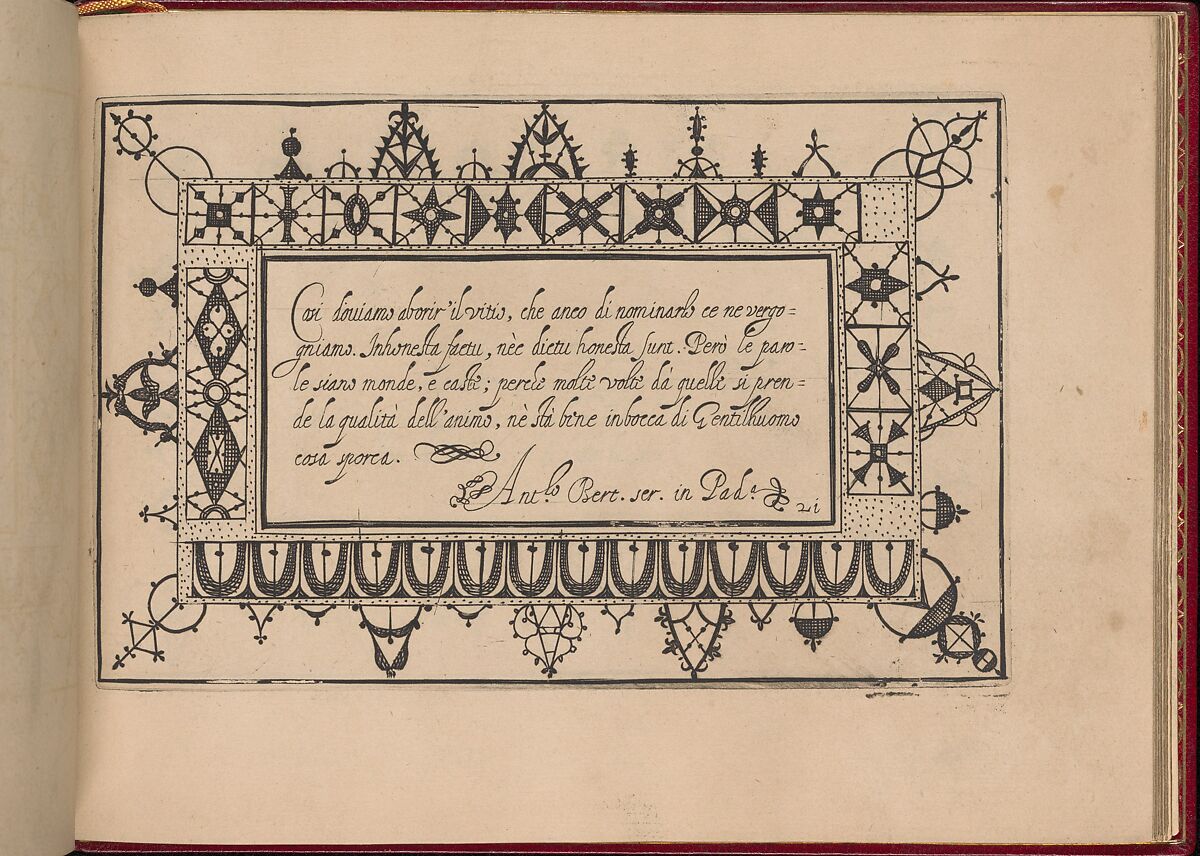 Cosi douiamo aborir' il vitio, che anco di nominarlo ce ne vergo=
gniamo. Inhonesta factu, nèc dictu honesta sunt. Però le paro=
le siano monde, e caste; perche molte volte dà quelle si pren=
de la qualità dell'animo, nè stà bene in bocca di Gentilhuomo
cosa sporca.
Ant.o Bert. ser. in Pad.a
21